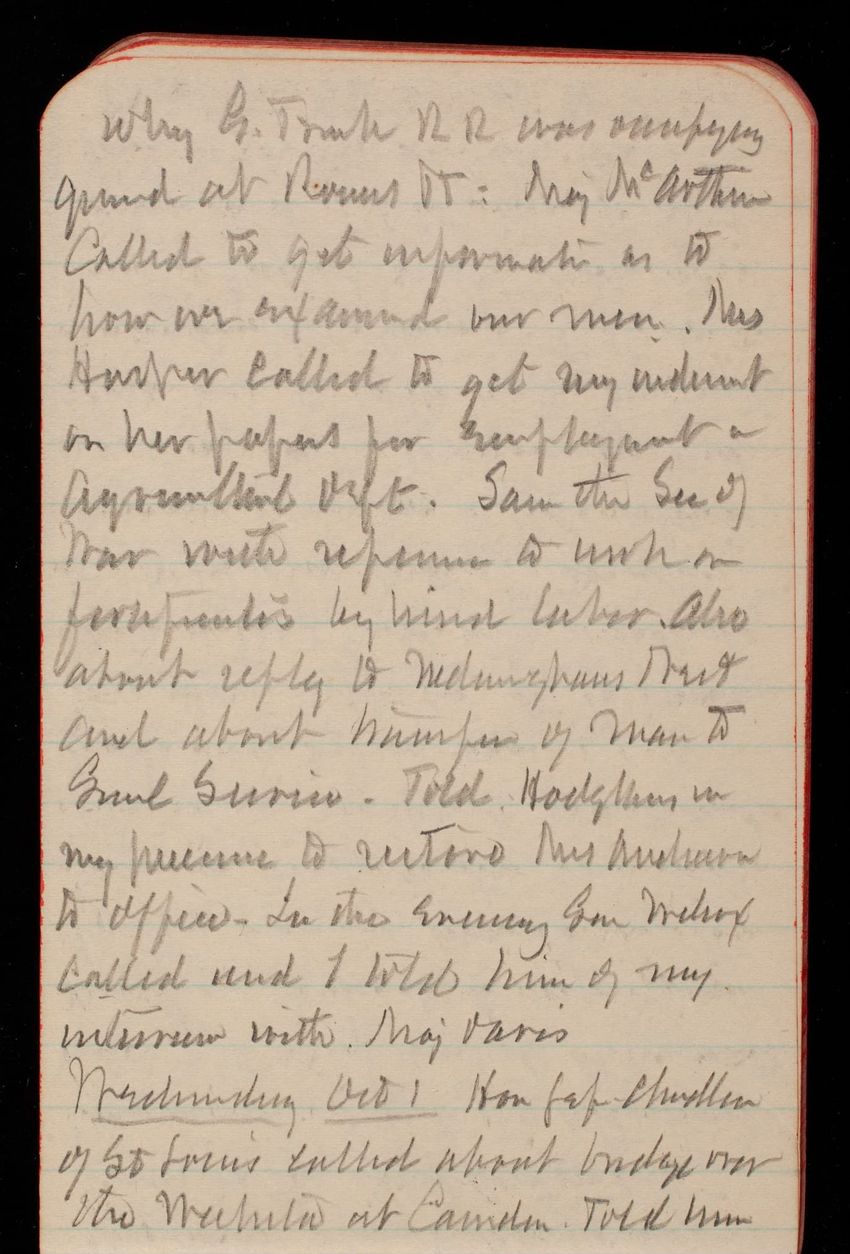 why G. Trunk R R was occupying
ground at Rouses Pt: Maj McArthur
Called to get information as to
how we examined our men. Mrs
Harper called to get my indorsement
on her papers for employment in
Agricultural Dept. Saw the Sec of
War with reference to work on
fortifications by hired labor. Also
about reply to Tract
and about transfer of man to
Genl Service. Told Hodgkins in
my presence to restore Mrs Anderson
to office. In the evening Gen Wilcox
called and I told him of my
interview with Maj Davis
Wednesday Oct 1 Hon
of St Louis called about bridge over
the Wachita at Camden. Told him